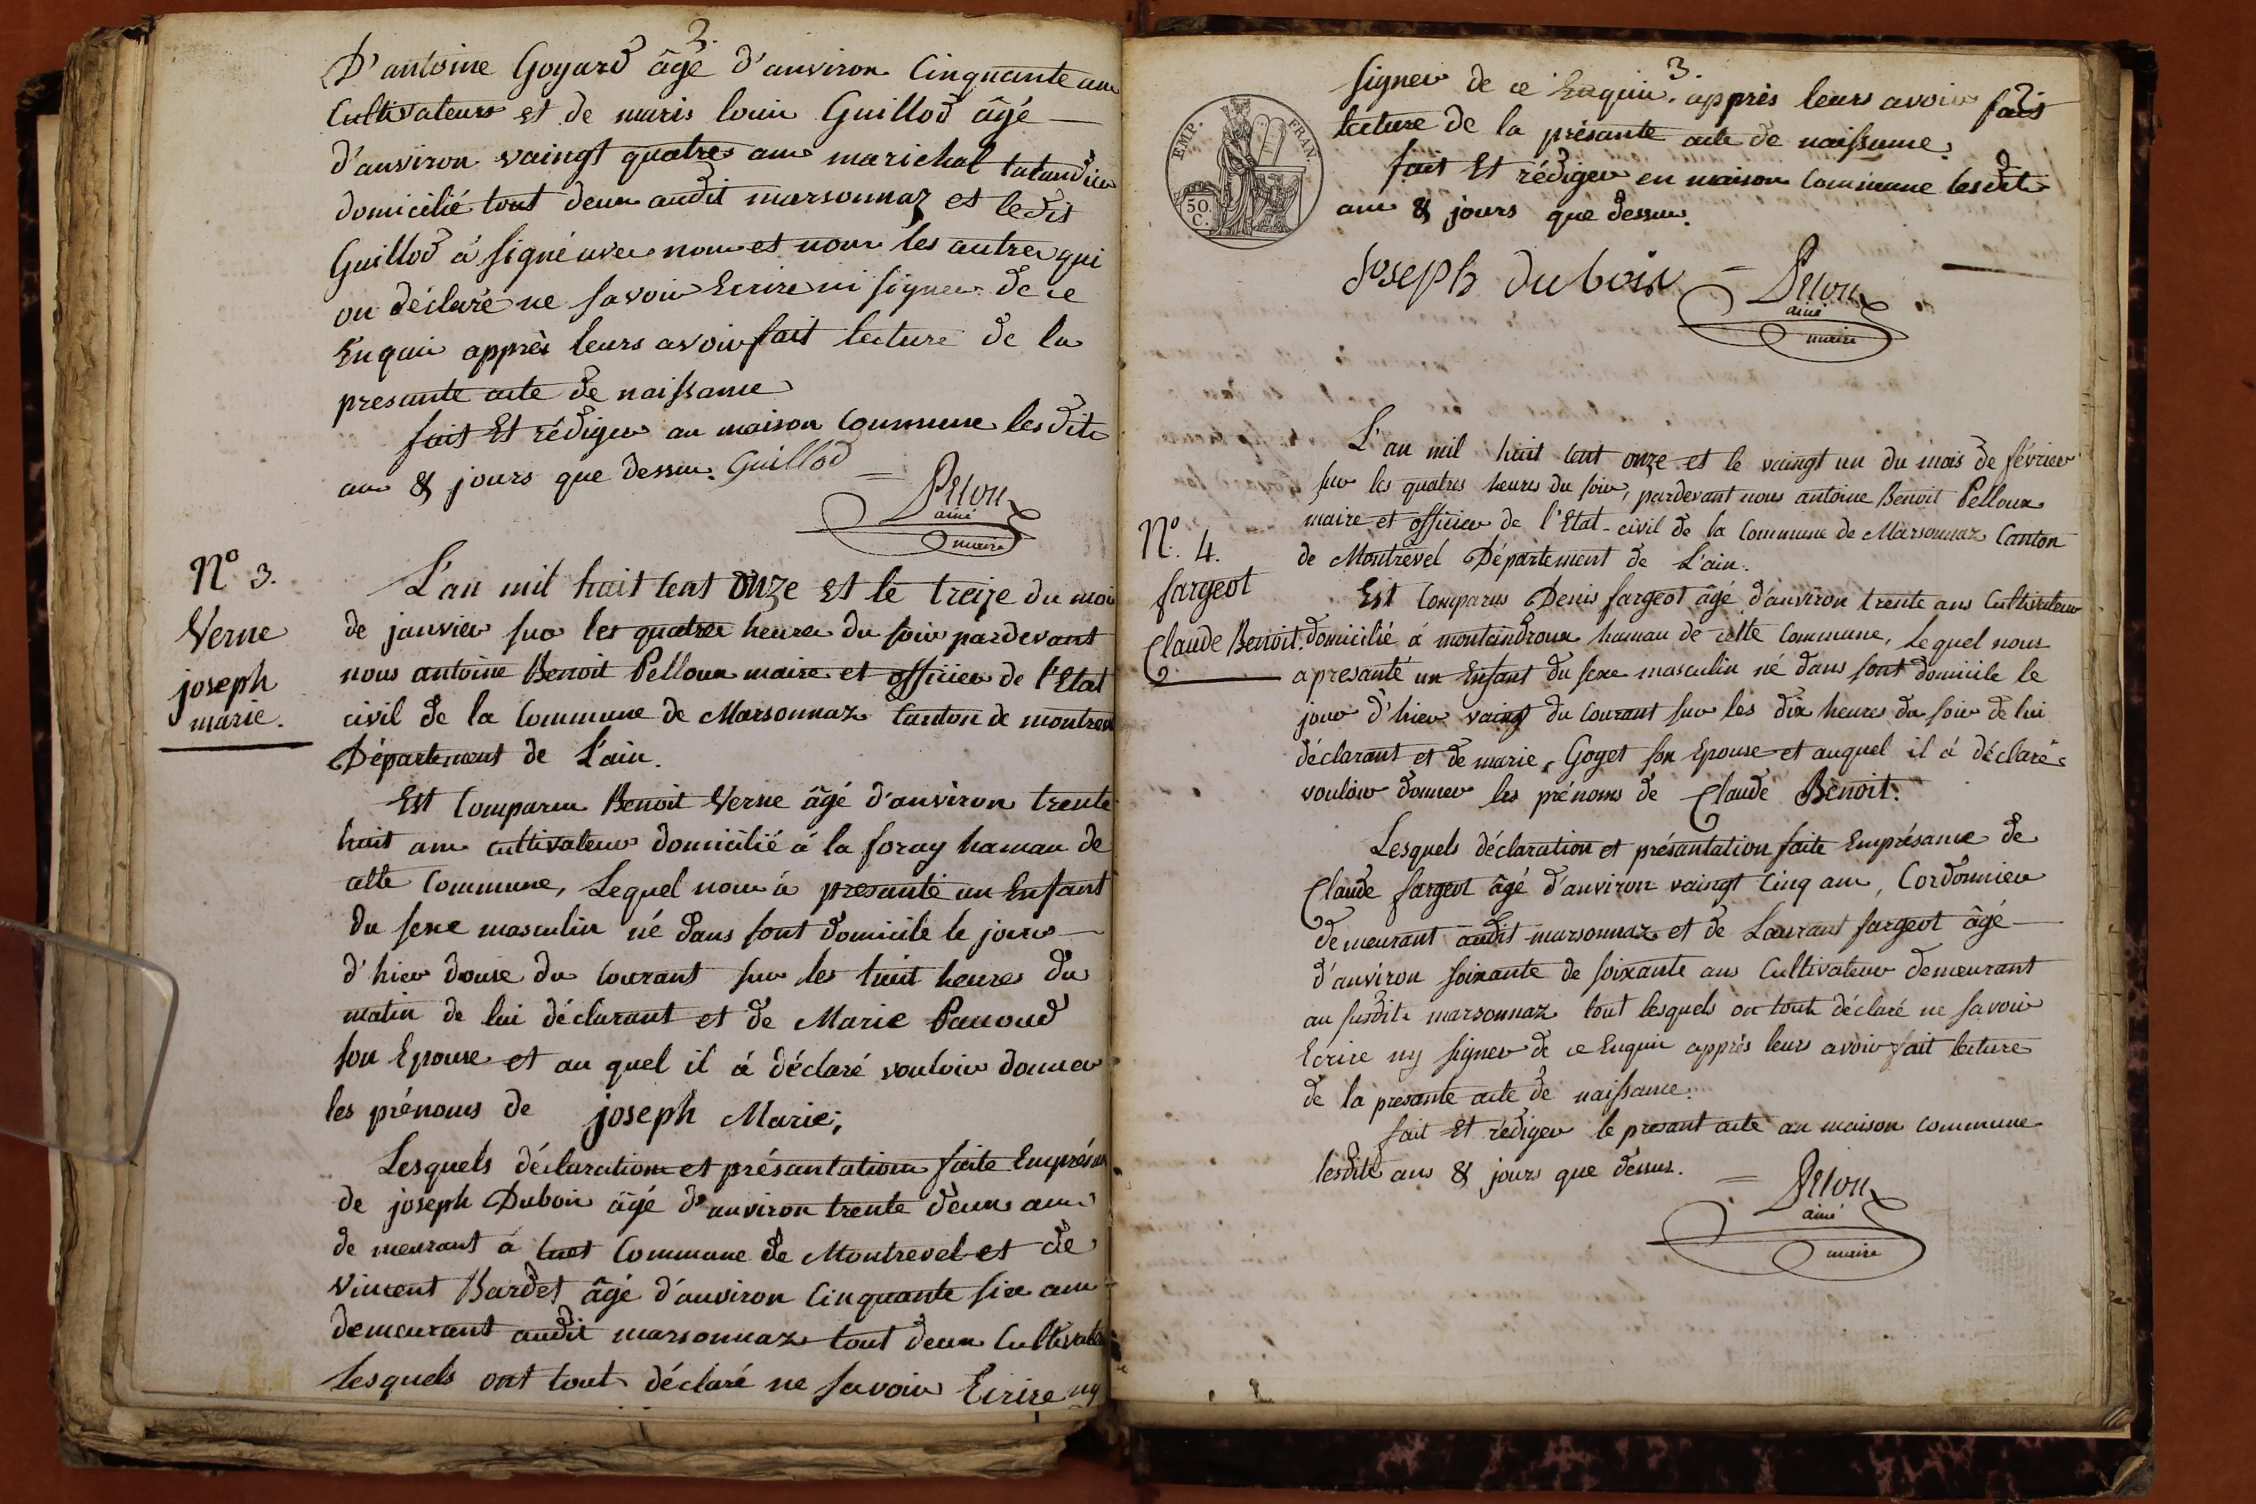 2.
D'antoine Goyard âgé d'anviron Cinquante ans
Cultivateurs et de maris louis Guillod âgé
d'anviron vaingt quatres ans marichal
domicilié tout deux audit marsonnaz et ledit
Guillod à signé avec nous et nom les autres qui
on déclaré ne savoir Ecrire ni signer de ce
Enquis apprès leurs avoir fait lecture de la
presante acte de naissance
fait Et rédiger au maison Commune lesdits
ans & jours que dessus. Guillod
Pelou
ainé
maire
N° 3.
Verne
joseph
marie.
L'an mil huit Cent Onze et le treize du mois
de janvier sur les quatres heures du soir pardevant
nous antoine Benoit Pelloux maire et officier de l'Etat
civil de la Commune de Marsonnaz Canton de montrevel
Département de L'ain.
Est Comparus Benoit Verne âgé d'anviron trente
huit ans cultivateur domicilié à la foray hamau de
cette Commune, Lequel nous à presanté un Enfant
du sexe masculin né dans sont domicile le jours
d'hier douse du Courant sur les huit heures du
matin de lui déclarant et de Marie Panoud
son Epouse et au quel il á déclaré vouloir donner
les prénoms de joseph Marie;
Lesquels déclaration et présantation faite Emprésance
de joseph Dubois âgé d'anviron trente deux ans
de meurant à Cuet Commune de Montrevel et de
Vincent Bardet âgé d'anviron Cinquante six ans
demeurant audit marsonnaz tout deux Cultivateur
Lesquels ont tout déclaré ne savoir Ecrire ny
3.
signer de ce Enquis. apprès leurs avoir fait
lecture de la présante acte de naissance.
fait Et rédiger en maison Commune lesdits
ans & jours que dessus.
EMP. FRAN.
50
C.
Joseph dubois
Pelou
ainé
maire
N° 4.
fargeot
Claude Benoit.
L'an mil huit Cent onze et le vaingt un du mois de février
sur les quatres heures du soir, pardevant nous antoine Benoit Pelloux
maire et officier de l'Etat-civil de la Commune de Marsonnaz Canton
de Montrevel Département de L'ain.
Est Comparus Denis fargeot âgé d'anviron trente ans Cultivateur
domicilié à montaindroux hamau de cette Commune, Lequel nous
a presanté un Enfant du sexe masculin né dans sont domicile le
jour d'hier vaingt du Courant sur les dix heures du soir de lui
déclarant et de marie Goyet son Epouse et auquel il á déclaré
vouloir donner les prénoms de Claude Benoit.
Lesquels déclaration et présantation faite Emprésance de
Claude fargeot âgé d'anviron vaingt Cinq ans, Cordonnier
demeurant audit marsonnaz et de Laurant fargeot âgé
d'anviron soixante de soixante ans Cultivateur demeurant
au susdit marsonnaz tout lesquels on tout déclaré ne savoir
Ecrire ny signer de ce Enquis apprès leurs avoir fait lecture
de la presante acte de naissance.
fait Et rédiger le presant acte au maison commune
lesdits ans & jours que dessus.
Pelou
ainé
maire